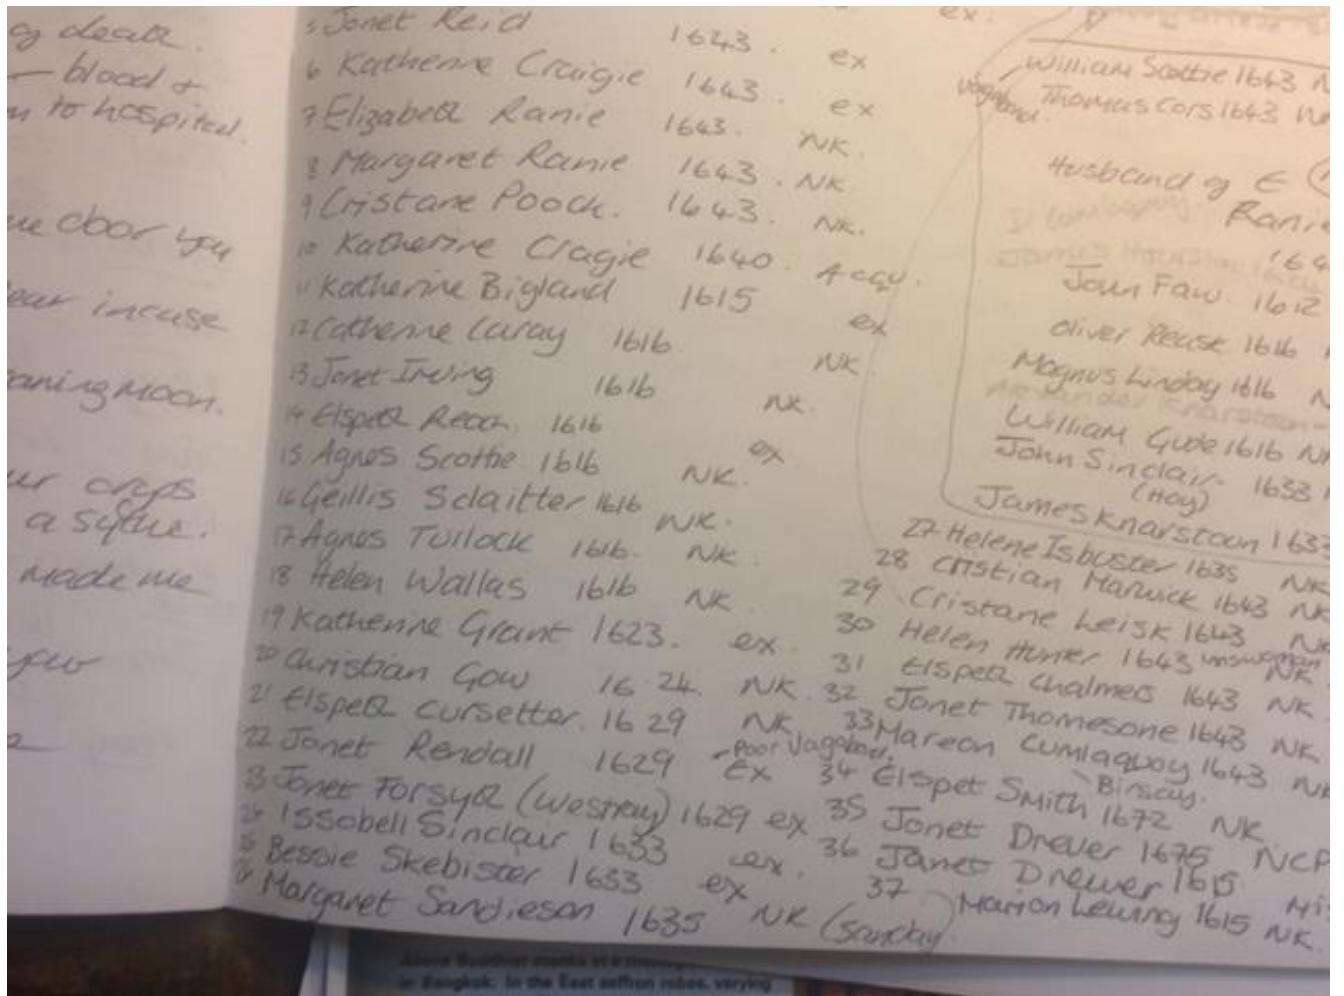 of death.
— blood &
to hospital.
door you
incuse
Moon.
crops
a sythe.
made me
few
5 Jonet Reid 1643. ex
6 Katherine Craigie 1643. ex
7 Elizabeth Ranie 1643. NK.
8 Margaret Ranie 1643. NK.
9 Cristane Poock. 1643. NK.
10 Katherine Cragie 1640. Acqu.
11 Katherine Bigland 1615 ex
12 Catherine Caray 1616. NK
13 Jonet Irving 1616 NK.
14 Elspeth Reoch. 1616 ex
15 Agnes Scottie 1616 NK.
16 Geillis Sclaitter 1616 NK.
17 Agnes Tullock 1616. NK.
18 Helen Wallas 1616 NK.
19 Katherine Grant 1623. ex.
20 Christian Gow 1624. NK.
21 Elspeth Cursetter. 1629 NK
22 Jonet Rendall 1629 Ex - Poor Vagabond.
23 Jonet Forsyth (Westray) 1629 ex
24 Issobell Sinclair 1633 ex.
25 Bessie Skebister 1633 ex
26 Margaret Sandieson 1635 NK (Sanday)
ex.
William Scottie 1643
vagabond.
Thomas Cors 1643
Husband of E
Ranie
John Faw. 1612
Oliver Reuse 1616
Magnus Linday 1616
William Gude 1616
John Sinclair. 1633
(Hoy)
James Knarstoun 1633
27 Helene Isbuster 1635 NK
28 Cristian Marwick 1643 NK
29 Cristane Leisk 1643 NK
30 Helen Hunter 1643 NK
31 Elspeth Chalmers 1643 NK
32 Jonet Thomesone 1643 NK
33 Mareon Cumlaquoy 1643 NK
Birsay.
34 Elspet Smith 1672 NK
35 Jonet Drever 1675 NCP
36 Janet Drewer 1615
37 Marion Lewing 1615 NK.
Above Buddhist monks at a
in Bangkok. In the East saffron robes, varying